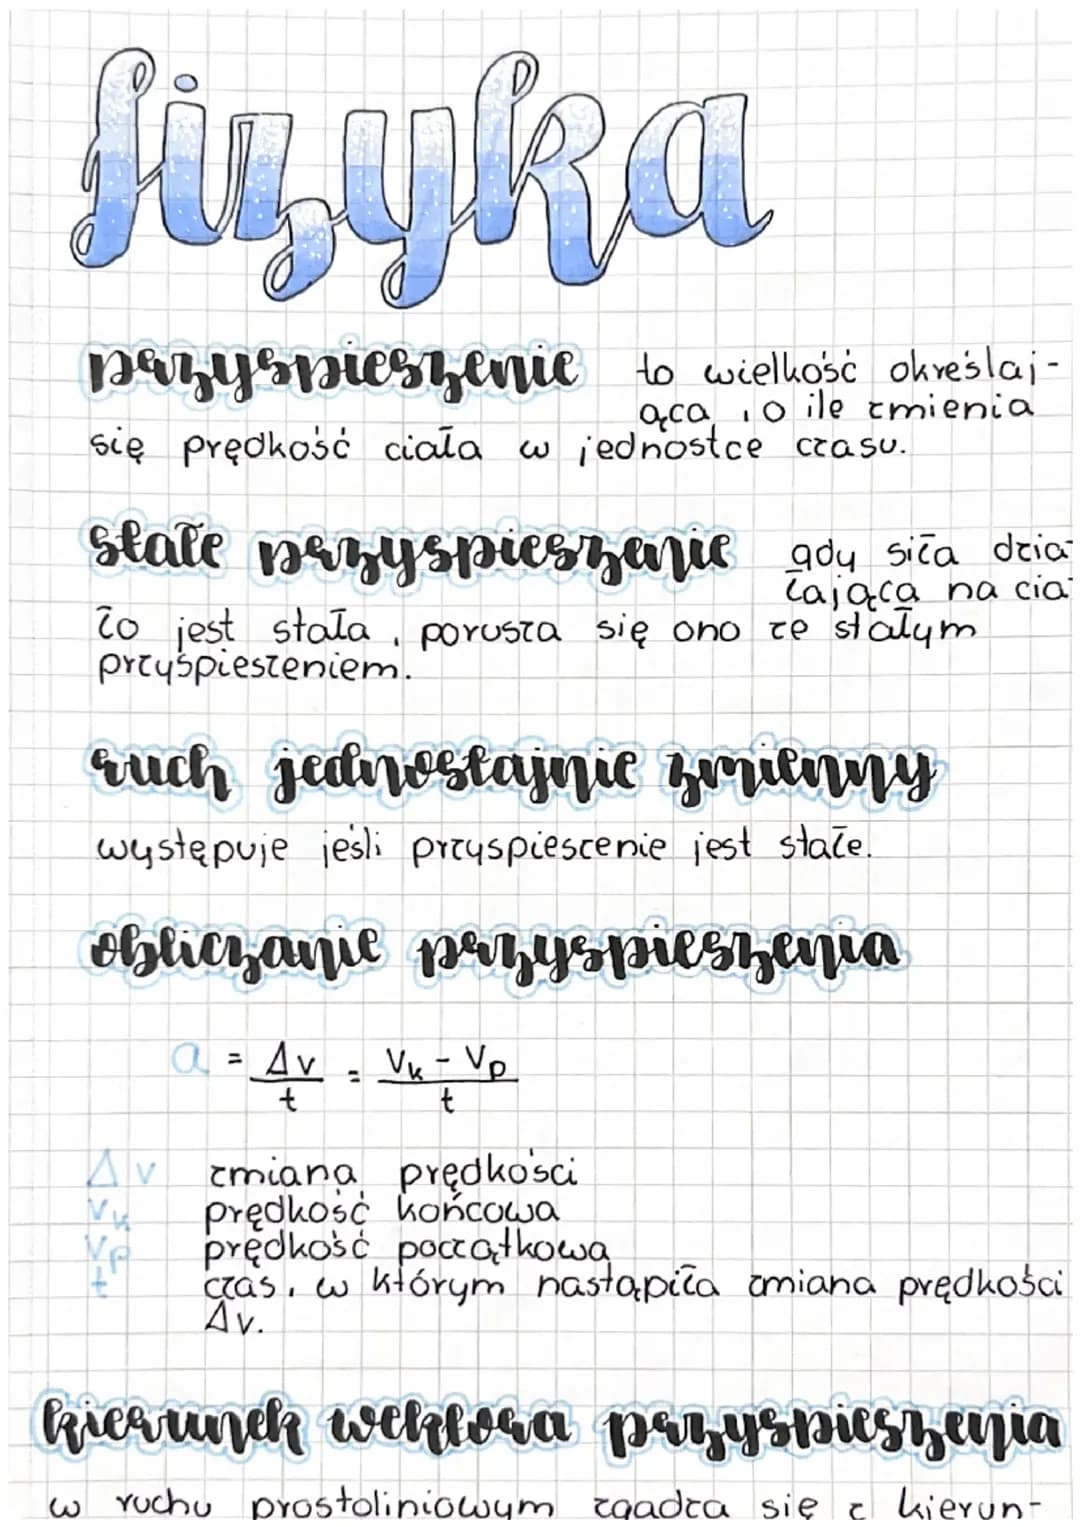 fizyka
przyspieszenie to wielkość określaj-
ąca , o ile zmienia
się prędkość ciała w jednostce czasu.
stałe przyspieszenie gdy siła dzia
łająca na cia
ło jest stała , porusza się ono ze stałym
przyśpieszeniem.
ruch jednostajnie zmienny
występuje jeśli przyspieszenie jest stałe.
obliczanie przyspieszenia
a = Δv / t = Vk - Vp / t
Δv zmiana prędkości
Vk prędkość końcowa
Vp prędkość początkowa
t czas , w którym nastąpiła zmiana prędkości
Δv.
kierunek wektora przyspieszenia
w ruchu prostoliniowym zgadza się z kierun-